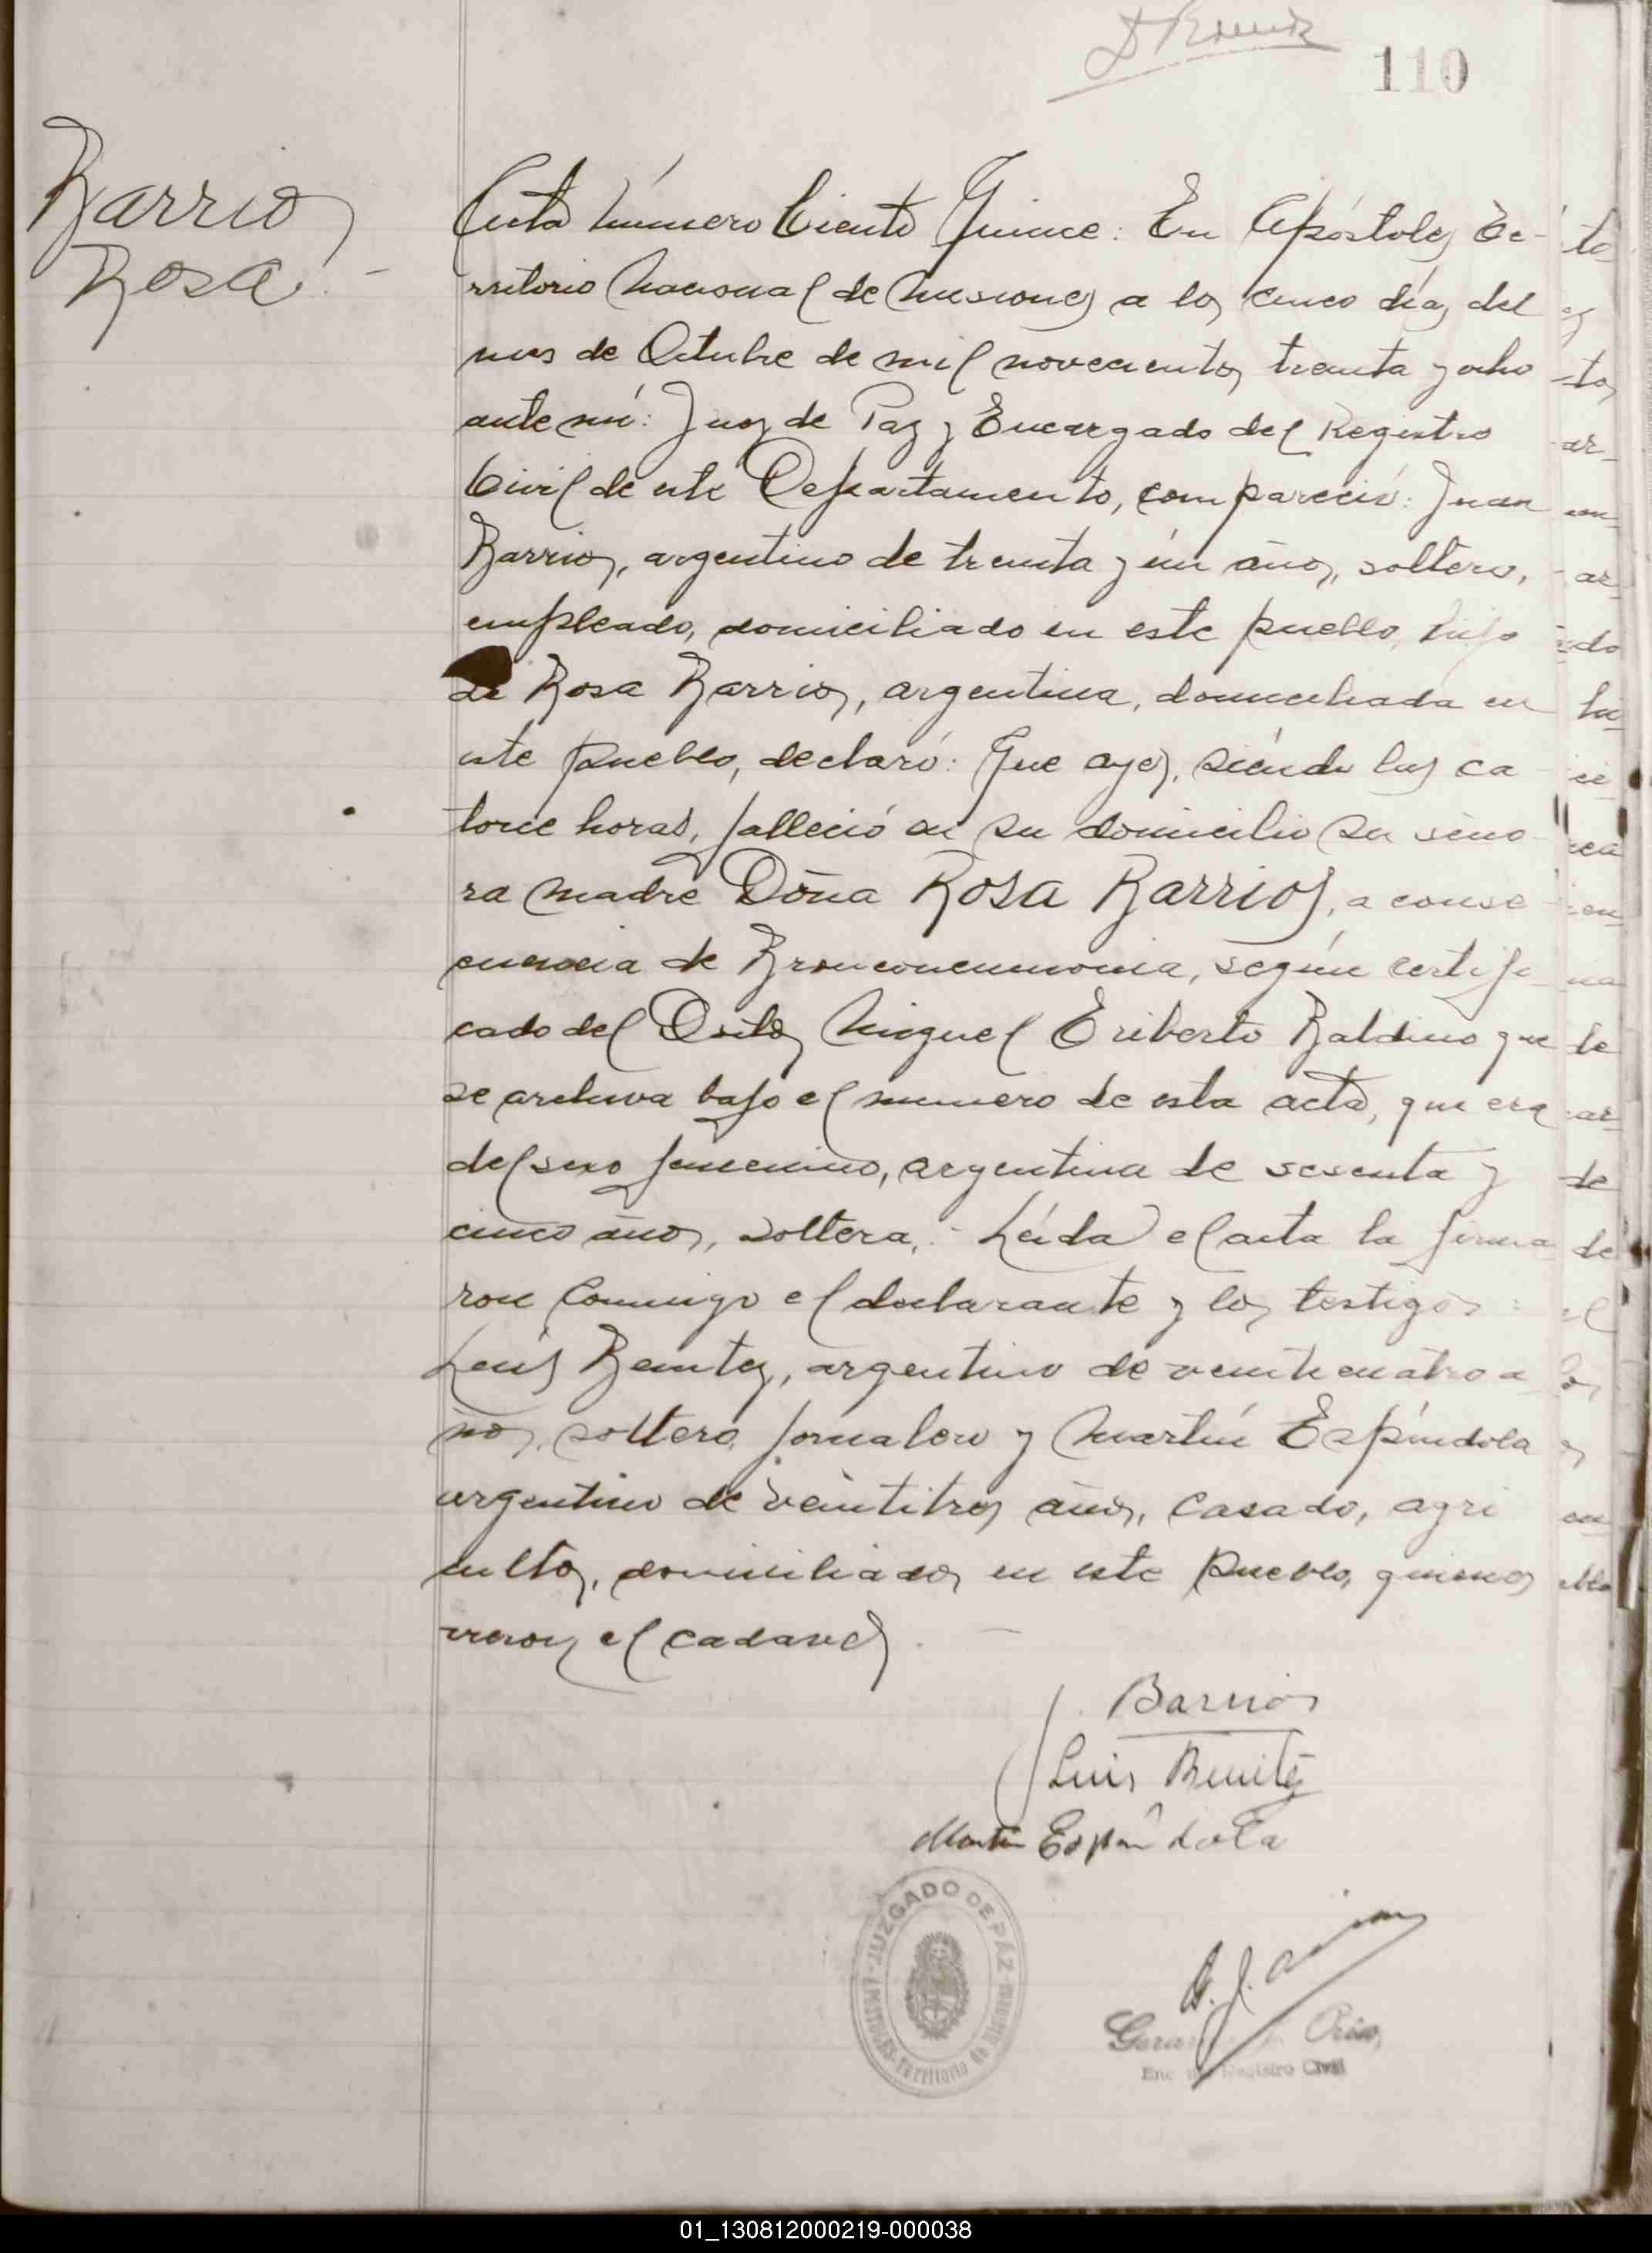 110
Barrios
Rosa.-
Acta número Ciento Quince: En Apóstoles Te-
rritorio Nacional de Misiones a los cinco días del
mes de Octubre de mil novecientos treinta y ocho
ante mí: Juez de Paz y Encargado del Registro
Civil de este Departamento, compareció: Juan
Barrios, argentino de treinta y ún años, soltero,
empleado, domiciliado en este pueblo, hijo
de Rosa Barrios, argentina, domiciliada en
este pueblo, declaró: Que ayer, siéndo las ca-
torce horas, falleció en su domicilio su seño-
ra madre Doña Rosa Barrios, a conse-
cuencia de Bronconeumonia, según certifi-
cado del Miguel Eriberto Baldino que
se archiva bajo el numero de esta acta, que era
del sexo femenino, argentina de sesenta y
cinco años, soltera,.- Leída el acta la firma-
ron conmigo el declarante y los testigos:
Luis Benitez, argentino de veinticuatro a-
ños, soltero, jornalero y Martín Espíndola
argentino de veintitres años, casado, agri
cultor, domiciliados en este pueblo, quienes
vieron el cadaver.-
J. Barrios
Luis Benitez
Martin Espíndola
JUZGADO DE PÁZ
Territorio de Misiones
Enc. del Registro Civil
01_130812000219-000038